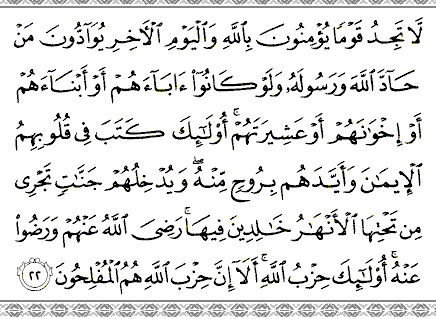 لَّا تَجِدُ قَوْمًا يُؤْمِنُونَ بِٱللَّهِ وَٱلْيَوْمِ ٱلْـَٔاخِرِ يُوَآدُّونَ مَنْ
حَآدَّ ٱللَّهَ وَرَسُولَهُۥ وَلَوْ كَانُوٓا۟ ءَابَآءَهُمْ أَوْ أَبْنَآءَهُمْ
أَوْ إِخْوَٰنَهُمْ أَوْ عَشِيرَتَهُمْ ۚ أُو۟لَـٰٓئِكَ كَتَبَ فِى قُلُوبِهِمُ
ٱلْإِيمَـٰنَ وَأَيَّدَهُم بِرُوحٍ مِّنْهُ ۖ وَيُدْخِلُهُمْ جَنَّـٰتٍ تَجْرِى
مِن تَحْتِهَا ٱلْأَنْهَـٰرُ خَـٰلِدِينَ فِيهَا ۚ رَضِىَ ٱللَّهُ عَنْهُمْ وَرَضُوا۟
عَنْهُ ۚ أُو۟لَـٰٓئِكَ حِزْبُ ٱللَّهِ ۚ أَلَآ إِنَّ حِزْبَ ٱللَّهِ هُمُ ٱلْمُفْلِحُونَ ٢٢